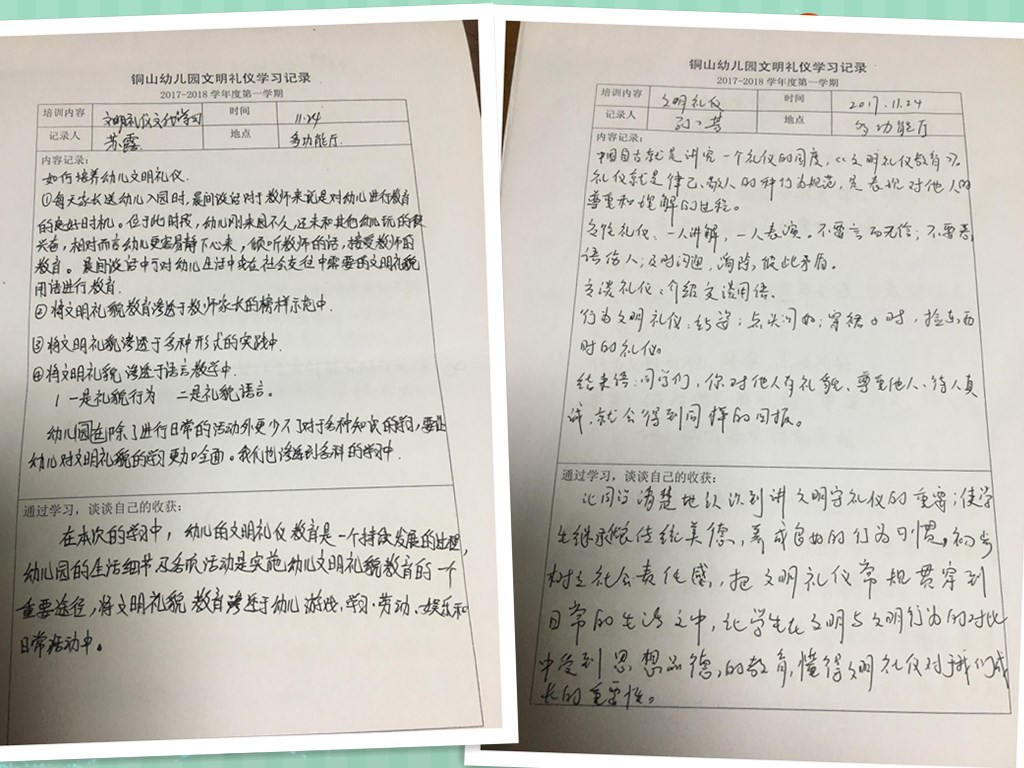 铜山幼儿园文明礼仪学习记录
2017-2018 学年度第一学期
培训内容 文明礼仪文化学习 时间 11.24
记录人 苏露 地点 多功能厅.
内容记录：
如何培养幼儿文明礼仪.
①每天家长送幼儿入园时,晨间谈话对于教师来说是对幼儿进行教育
的良好时机。但于此时段,幼儿刚来园不久,还未和其他幼儿玩的很
兴奋,相对而言幼儿更容易静下心来,倾听教师的话,接受教师的
教育。晨间谈话中可对幼儿生活中或在社会交往中需要的文明礼貌
用语进行教育.
②将文明礼貌教育渗透于教师家长的榜样示范中.
③将文明礼貌渗透于各种形式的实践中.
④将文明礼貌渗透于语言教学中.
1 一是礼貌行为 二是礼貌语言。
幼儿园除了进行日常的活动外更少不了对于各种知识的学习,要让
幼儿对文明礼貌的学习更加全面。我们也渗透到各科的学习中.
通过学习，谈谈自己的收获:
在本次的学习中,幼儿的文明礼仪教育是一个持续发展的过程,
幼儿园的生活细节及各项活动是实施幼儿文明礼貌教育的一个
重要途径,将文明礼貌教育渗透于幼儿游戏、学习、劳动、娱乐和
日常活动中。
铜山幼儿园文明礼仪学习记录
2017-2018 学年度第一学期
培训内容 文明礼仪 时间 2017.11.24
记录人 地点 多功能厅
内容记录：
中国自古就是讲究一个礼仪的国度,《文明礼仪教育》
礼仪就是律己、敬人的一种行为规范,是表现对他人的
尊重和理解的过程。
一人讲解,一人表演。不要言而无信;不要恶
语伤人;及时沟通,消除彼此矛盾。
交谈礼仪:介绍交谈用语。
行为文明礼仪:站姿;点头问好;穿裙子时,捡东西
时的礼仪。
结束语:同学们,你对他人有礼貌、尊重他人、待人真
诚,就会得到同样的回报。
通过学习，谈谈自己的收获:
让同学清楚地认识到讲文明守礼仪的重要;使学
生继承传统美德,养成良好的行为习惯,初步
树立社会责任感,把文明礼仪常规贯穿到
日常的生活之中,让学生在文明与文明行为的对比
中受到思想品德的教育,懂得文明礼仪对于我们成
长的重要性。